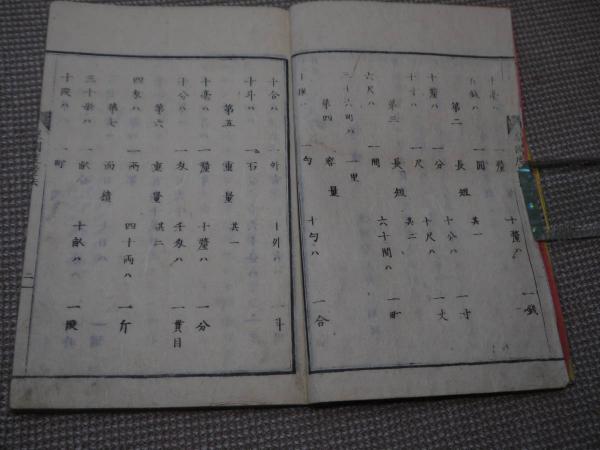 十毫ハ 一釐 十釐ハ 一銭
百銭ハ 一圓
第二 長短 其一
十釐ハ 一分 十分ハ 一寸
十寸ハ 一尺 十尺ハ 一丈
第三 長短 其二
六尺ハ 一間 六十間ハ 一町
三十六町ハ 一里
第四 容量
一勺 十勺ハ 一合
十合ハ 一升 十升ハ 一斗
十斗ハ 一石
第五 重量 其一
十毫ハ 一釐 十釐ハ 一分
十分ハ 一匁 千匁ハ 一貫目
第六 重量 其二
四匁ハ 一兩 四十兩ハ 一斤
第七 面積
三十歩ハ 一畝 十畝ハ 一段
十段ハ 一町
二